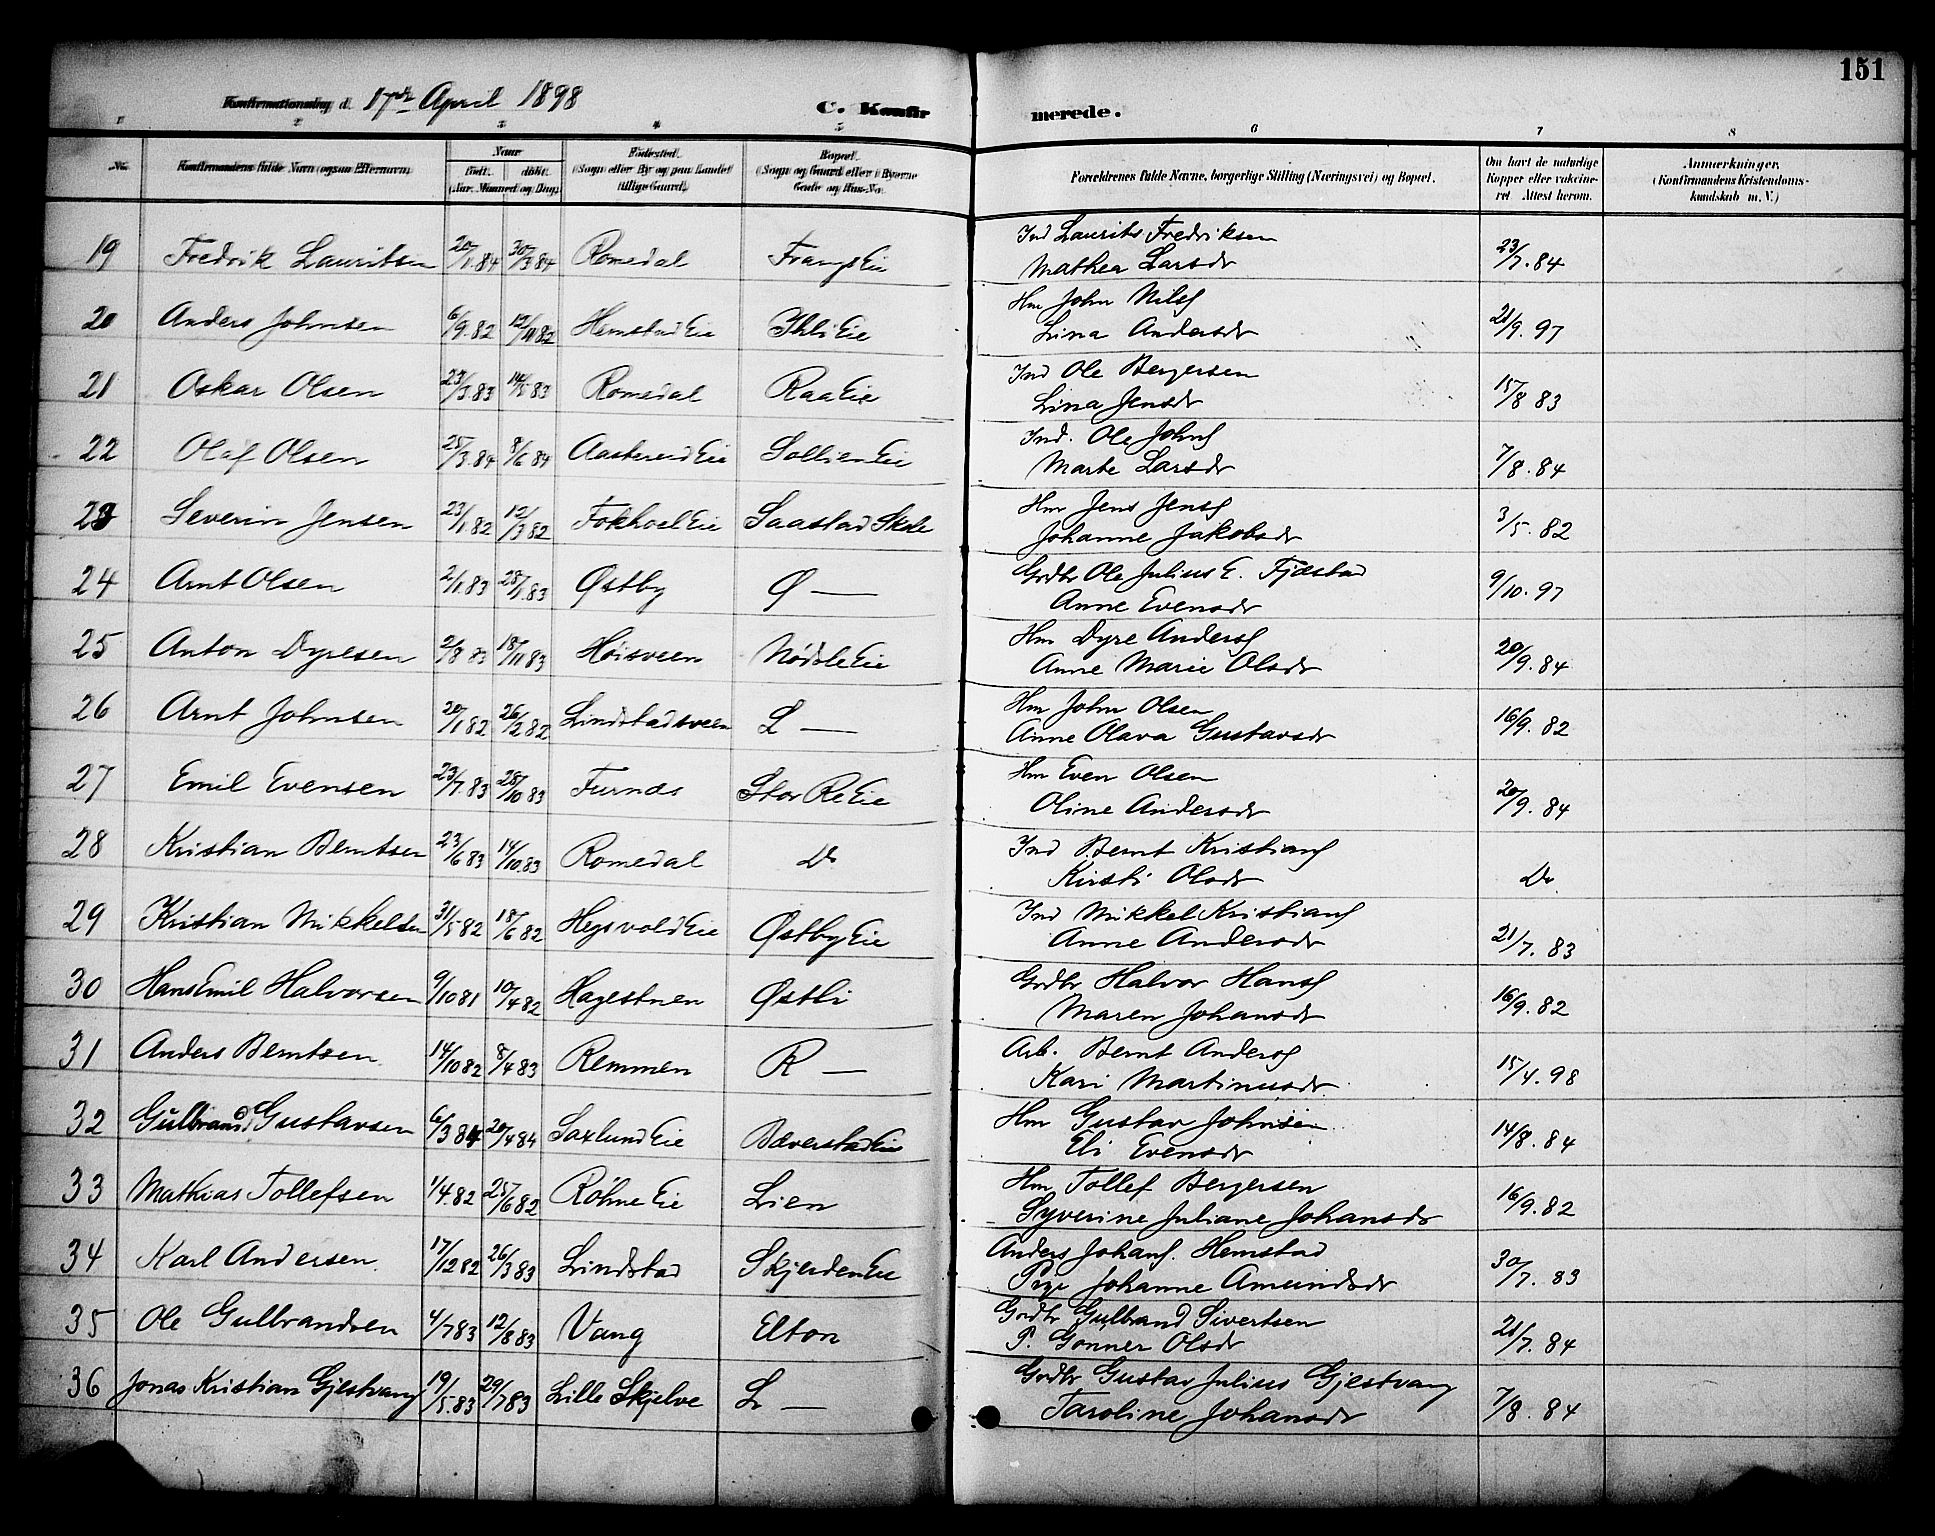 151
Konfirmationsdag d. 17de April 1898
C. Konfirmerede.
1 2 3 4 5 6 7 8
No. Konfirmandens fulde Navn (ogsaa Efternavn). Naar født. døbt. (Aar, Maaned og Dag) Fødested. (Sogn eller By og paa Landet tillige Gaard). Bopæl. (Sogn og Gaard eller i Byerne Gade og Hus-No. Forældrenes fulde Navne, borgerlige Stilling (Næringsvei) og Bopæl. Om havt de naturlige Kopper eller vaccineret. Attest herom. Anmærkninger. (Konfirmandens Kristendomskundskab m. V.)
19 Fredrik Lauritsen 20/1.84 30/3 84 Romedal Frangs Eie Ind Laurits Fredriksen 23/7.84
Mathea Larsdr
20 Anders Johnsen 6/9.82 12/11 82 Hemstad Eie Ihli Eie Hm John Nilsf 21/9.97
Lina Andersdr
21 Oskar Olsen 23/3.83 14/5.83 Romedal Raa Eie Ind Ole Bergersen 15/8 83
Lina Jensdr
22 Olaf Olsen 25/3.84 8/6 84 Aastereid Eie Sollien Eie Ind. Ole Johnsf 7/8.84
Marte Larsdr
23 Severin Jensen 23/1 82 12/3 82 Fokhoel Eie Saastad Skole Hm Jens Jensf 3/5.82
Johanne Jakobsdr
24 Arnt Olsen 2/1.83 28/1.83 Østby Ø — Grdbr Ole Julius E. Fjæstad 9/10.97
Anne Evensdr
25 Anton Dyresen 2/8 83 18/11 83 Høisveen Nødsle Eie Hm Dyre Andersf 20/9.84
Anne Marie Olsdr
26 Arnt Johnsen 20/1 82 26/2 82 Lindstadsveen L — Hm John Olsen 16/9.82
Anne Olava Gustavsdr
27 Emil Evensen 23/7.83 28/10 83 Furnæs Stor Re Eie Hm Even Olsen 20/9.84
Oline Andersdr
28 Kristian Berntsen 23/6 83 14/10.83 Romedal Do Ind Bernt Kristiansf Do
Kirsti Olsdr
29 Kristian Mikkelsen 31/5 82 18/6 82 Hegsvold Eie Østby Eie Ind Mikkel Kristiansf 21/7.83
Anne Andersdr
30 Hans Emil Halvorsen 9/10 81 10/4 82 Hagestuen Østli Grdbr Halvor Hansf 16/9.82
Maren Johansdr
31 Anders Berntsen 14/10 82 8/4 83 Remmen R — Arb. Bernt Andersf 15/4.98
Kari Martinusdr
32 Gulbrand Gustavsen 6/3 84 20/4 84 Saxlund Eie Bæverstad Eie Hm Gustav Johnsen 14/8.84
Eli Evensdr
33 Mathias Tollefsen 1/4.82 25/6 82 Røhne Eie Lien Hm Tollef Bergersen 16/9.82
Syverine Juliane Johansdr
34 Karl Andersen 17/12 82 26/3 83 Lindstad Skjerden Eie Anders Johansf. Hemstad 30/7.83
Pige Johanne Amundsdr
35 Ole Gulbrandsen 4/7 83 12/8 83 Vang Elton Grdbr Gulbrand Sivertsen 21/7.84
P. Gønner Olsdr
36 Jonas Kristian Gjestvang 19/5.83 29/7 83 Lille Skjelve L — Grdbr Gustav Julius Gjestvang 7/8.84
Taroline Johansdr